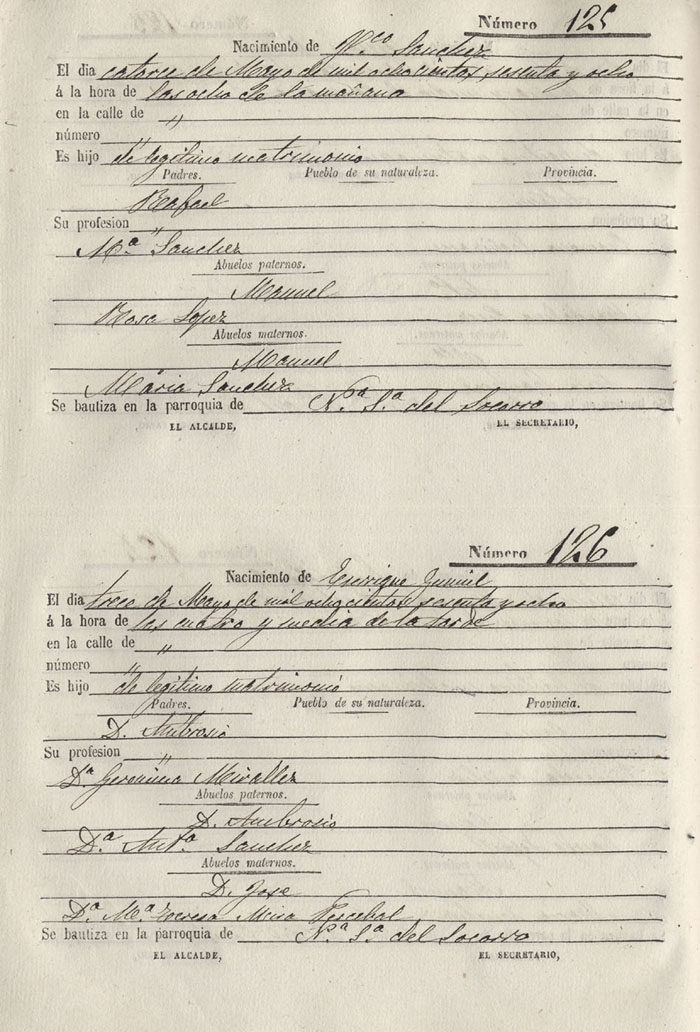 Número 125
Nacimiento de Fco Sanchez
El dia catorce de Mayo de mil ochocientos sesenta y ocho
á la hora de las ocho de la mañana
en la calle de "
número "
Es hijo de legitimo matrimonio
Padres. Pueblo de su naturaleza. Provincia.
Rafael
Su profesion "
Mª Sanchez
Abuelos paternos.
Manuel
Rosa Lopez
Abuelos maternos.
Manuel
Maria Sanchez
Se bautiza en la parroquia de Nª Sª del Socorro
EL ALCALDE, EL SECRETARIO,
Número 126
Nacimiento de Enrique
El dia trece de Mayo de mil ochocientos sesenta y ocho
á la hora de las cuatro y media de la tarde
en la calle de "
número "
Es hijo de legitimo matrimonio
Padres. Pueblo de su naturaleza. Provincia.
D. Ambrosio
Su profesion "
Dª Geronima Miralles
Abuelos paternos.
D. Ambrosio
Dª Antª Sanchez
Abuelos maternos.
D. Jose
Dª Mª Teresa Mira
Se bautiza en la parroquia de Nª Sª del Socorro
EL ALCALDE, EL SECRETARIO,